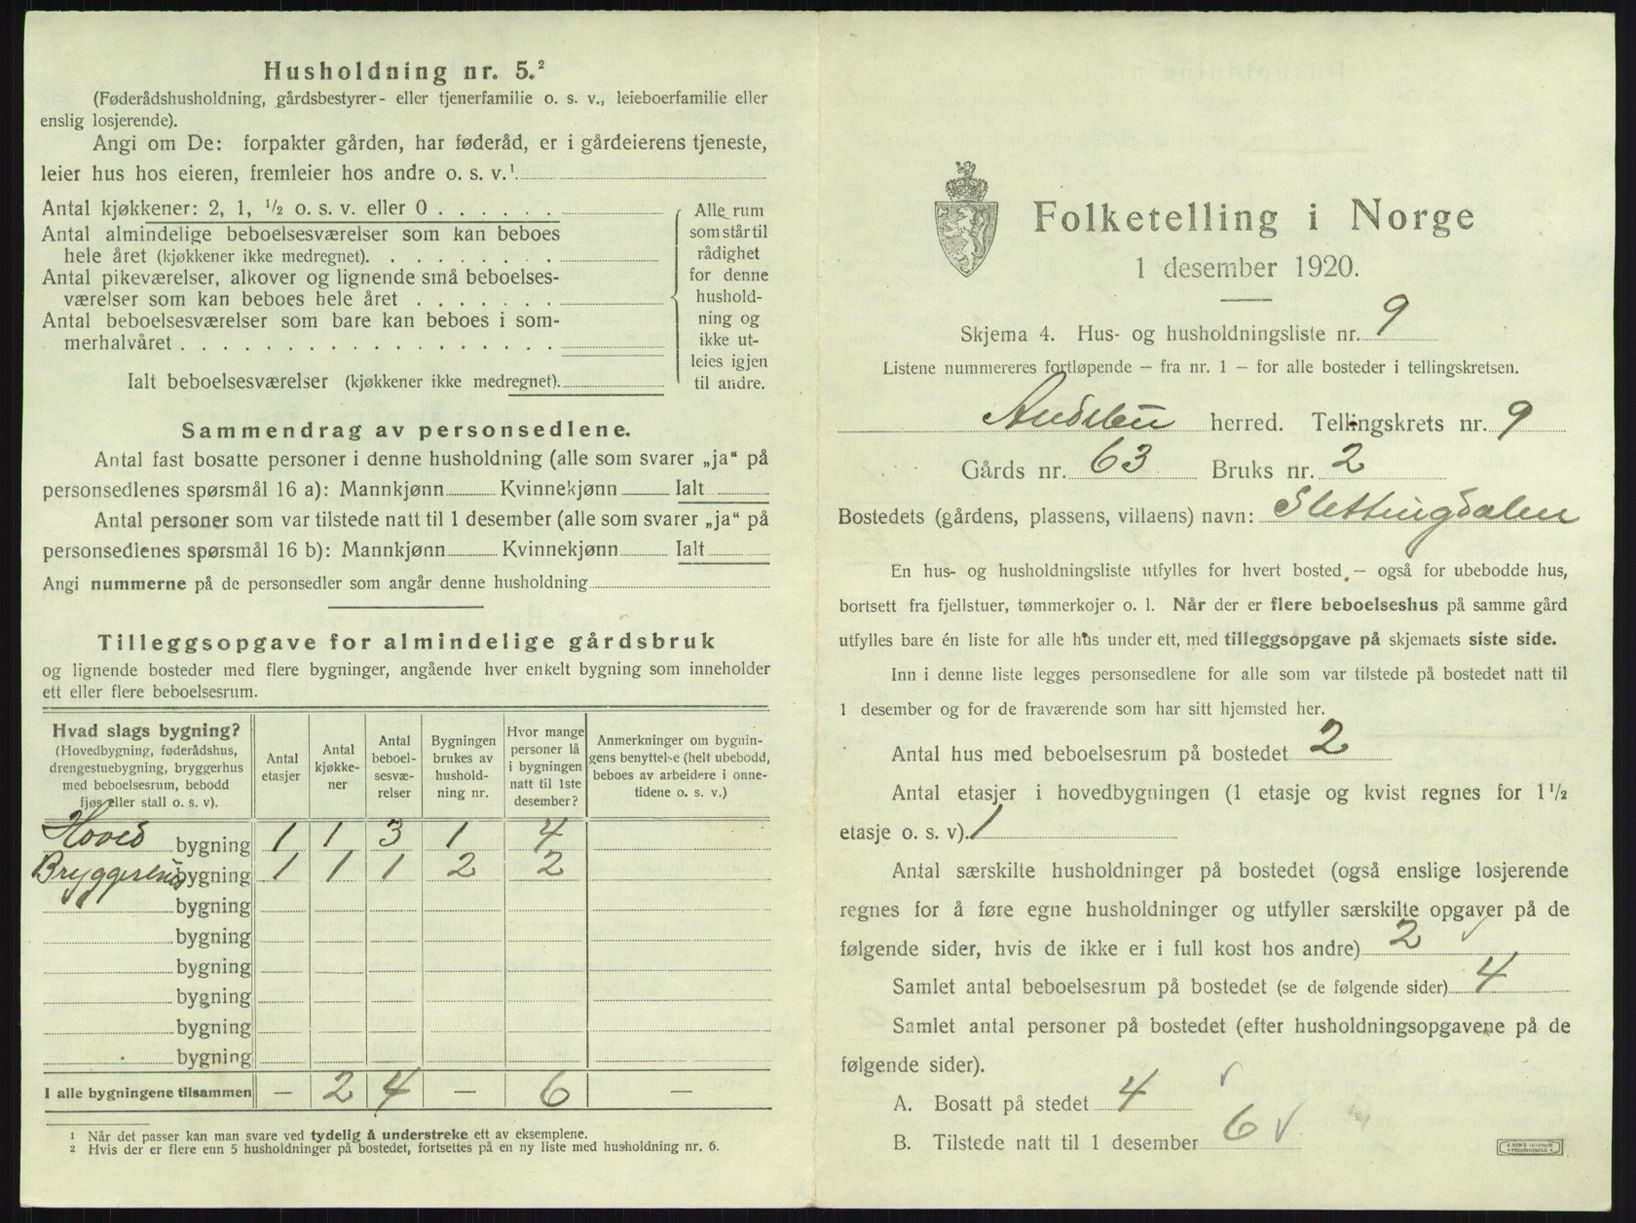 Husholdning nr. 5.²
(Føderådshusholdning, gårdsbestyrer- eller tjenerfamilie o. s. v., leieboerfamilie eller
enslig losjerende).
Angi om De: forpakter gården, har føderåd, er i gårdeierens tjeneste,
leier hus hos eieren, fremleier hos andre o. s. v.¹
Antal kjøkkener: 2, 1, ½ o. s. v. eller 0 . . . . . .
Antal almindelige beboelsesværelser som kan beboes
hele året (kjøkkener ikke medregnet). . . . . . . . .
Antal pikeværelser, alkover og lignende små beboelses-
værelser som kan beboes hele året . . . . . . .
Antal beboelsesværelser som bare kan beboes i som-
merhalvåret . . . . . . . . . . . . . . . . . .
Ialt beboelsesværelser (kjøkkener ikke medregnet).
Alle rum
som står til
rådighet
for denne
hushold-
ning og
ikke ut-
leies igjen
til andre.
Sammendrag av personsedlene.
Antal fast bosatte personer i denne husholdning (alle som svarer „ja“ på
personsedlenes spørsmål 16 a): Mannkjønn Kvinnekjønn Ialt
Antal personer som var tilstede natt til 1 desember (alle som svarer „ja“ på
personsedlenes spørsmål 16 b): Mannkjønn Kvinnekjønn Ialt
Angi nummerne på de personsedler som angår denne husholdning
Tilleggsopgave for almindelige gårdsbruk
og lignende bosteder med flere bygninger, angående hver enkelt bygning som inneholder
ett eller flere beboelsesrum.
Hvad slags bygning?
(Hovedbygning, føderådshus,
drengestuebygning, bryggerhus
med beboelsesrum, bebodd
fjøs eller stall o. s. v).
Antal
etasjer
Antal
kjøkke-
ner
Antal
beboel-
sesvæ-
relser
Bygningen
brukes av
hushold-
ning nr.
Hvor mange
personer lå
i bygningen
natt til 1ste
desember?
Anmerkninger om bygnin-
gens benyttelse (helt ubebodd,
beboes av arbeidere i onne-
tidene o. s. v.)
Hoved bygning 1 1 3 1 4
Bryggerhus bygning 1 1 1 2 2
bygning
bygning
bygning
bygning
bygning
bygning
I alle bygningene tilsammen — 2 4 — 6 —
¹ Når det passer kan man svare ved tydelig å understreke ett av eksemplene.
² Hvis der er flere enn 5 husholdninger på bostedet, fortsettes på en ny liste med husholdning nr. 6.
Folketelling i Norge
1 desember 1920.
Skjema 4. Hus- og husholdningsliste nr. 9
Listene nummereres fortløpende — fra nr. 1 — for alle bosteder i tellingskretsen.
Andebu herred. Tellingskrets nr. 9
Gårds nr. 63 Bruks nr. 2
Bostedets (gårdens, plassens, villaens) navn: Slettingdalen
En hus- og husholdningsliste utfylles for hvert bosted — også for ubebodde hus,
bortsett fra fjellstuer, tømmerkojer o. l. Når der er flere beboelseshus på samme gård
utfylles bare én liste for alle hus under ett, med tilleggsopgave på skjemaets siste side.
Inn i denne liste legges personsedlene for alle som var tilstede på bostedet natt til
1 desember og for de fraværende som har sitt hjemsted her.
Antal hus med beboelsesrum på bostedet 2
Antal etasjer i hovedbygningen (1 etasje og kvist regnes for 1½
etasje o. s. v). 1
Antal særskilte husholdninger på bostedet (også enslige losjerende
regnes for å føre egne husholdninger og utfyller særskilte opgaver på de
følgende sider, hvis de ikke er i full kost hos andre) 2
Samlet antal beboelsesrum på bostedet (se de følgende sider) 4
Samlet antal personer på bostedet (efter husholdningsopgavene på de
følgende sider).
A. Bosatt på stedet 4 √
B. Tilstede natt til 1 desember 6 √